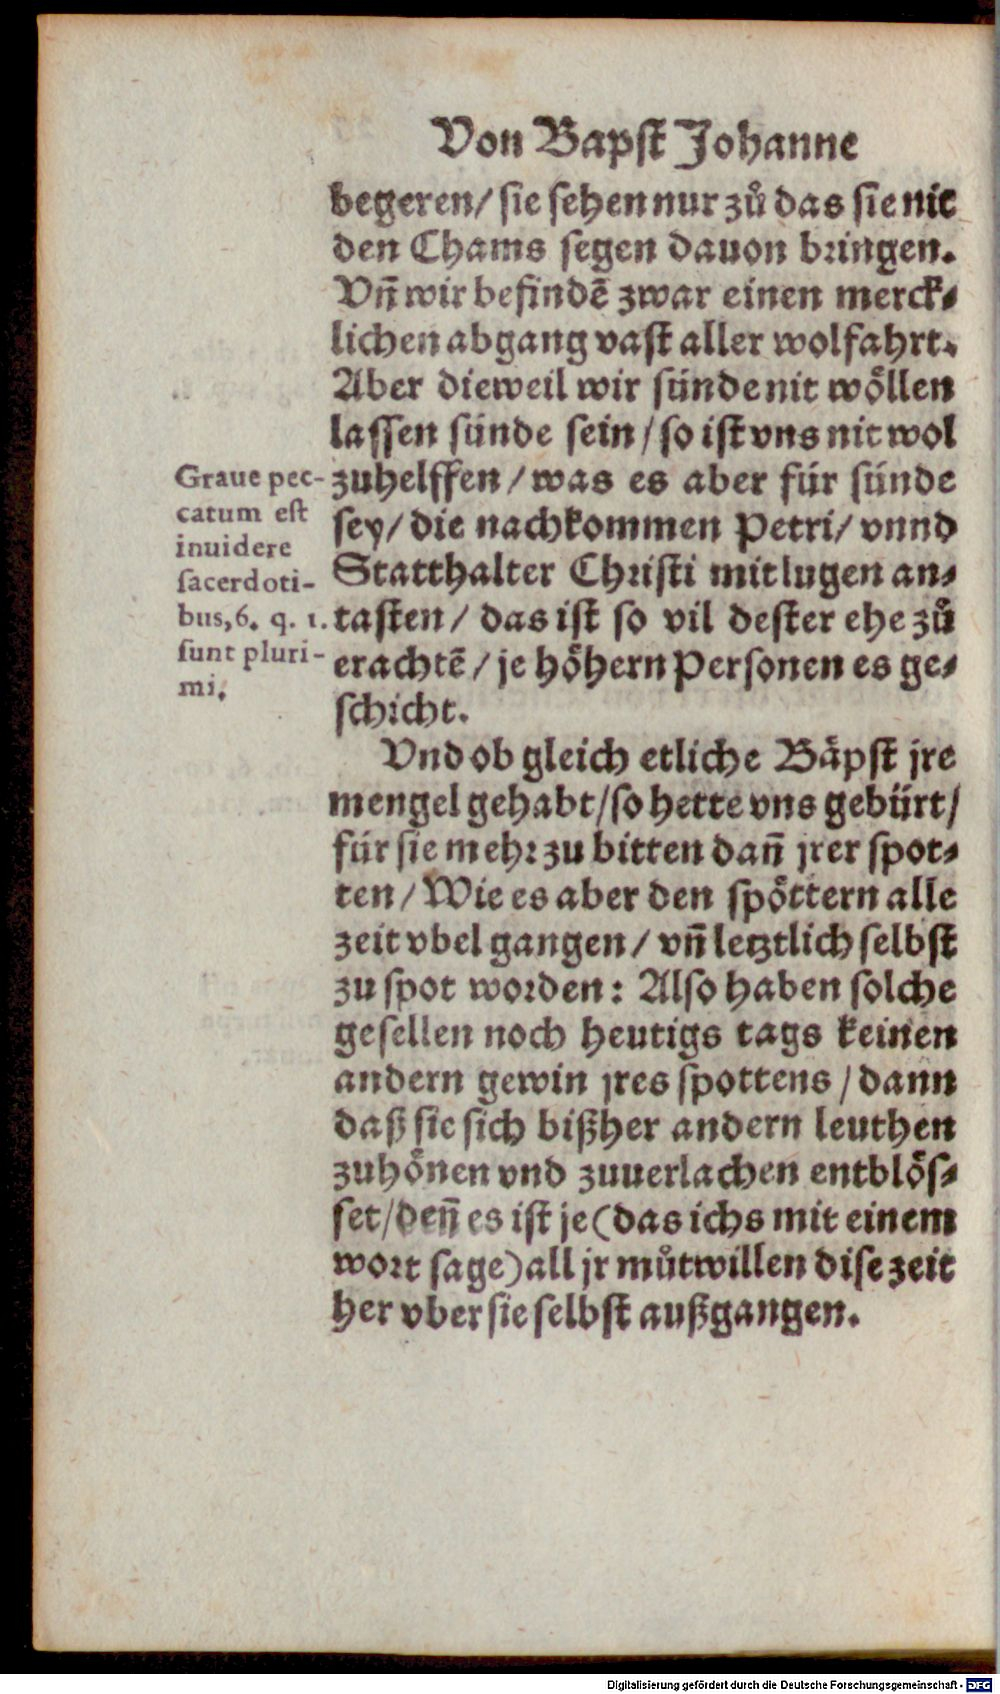 Von Bapst Johanne
begeren/ sie sehen nur zů das sie nit
den Chams segen dauon bringen.
Vñ wir befindẽ zwar einen merck-
lichen abgang vast aller wolfahrt.
Aber dieweil wir sünde nit wöllen
lassen sünde sein/ so ist vns nit wol
zuhelffen/ was es aber für sünde
sey/ die nachkommen Petri/ vnnd
Statthalter Christi mit lugen an-
tasten/ das ist so vil dester ehe zů
erachtẽ/ je höhern Personen es ge-
schicht.
Graue pec-
catum est
inuidere
sacerdoti-
bus, 6. q. 1.
sunt pluri-
mi.
Vnd ob gleich etliche Bäpst jre
mengel gehabt/ so hette vns gebürt/
für sie mehr zu bitten dañ jrer spot-
ten/ Wie es aber den spöttern alle
zeit vbel gangen/ vñ letztlich selbst
zu spot worden: Also haben solche
gesellen noch heutigs tags keinen
andern gewin jres spottens/ dann
daß sie sich bißher andern leuthen
zuhönen vnd zuuerlachen entblös-
set/ deñ es ist je (das ichs mit einem
wort sage) all jr můtwillen dise zeit
her vber sie selbst außgangen.
Digitalisierung gefördert durch die Deutsche Forschungsgemeinschaft - DFG